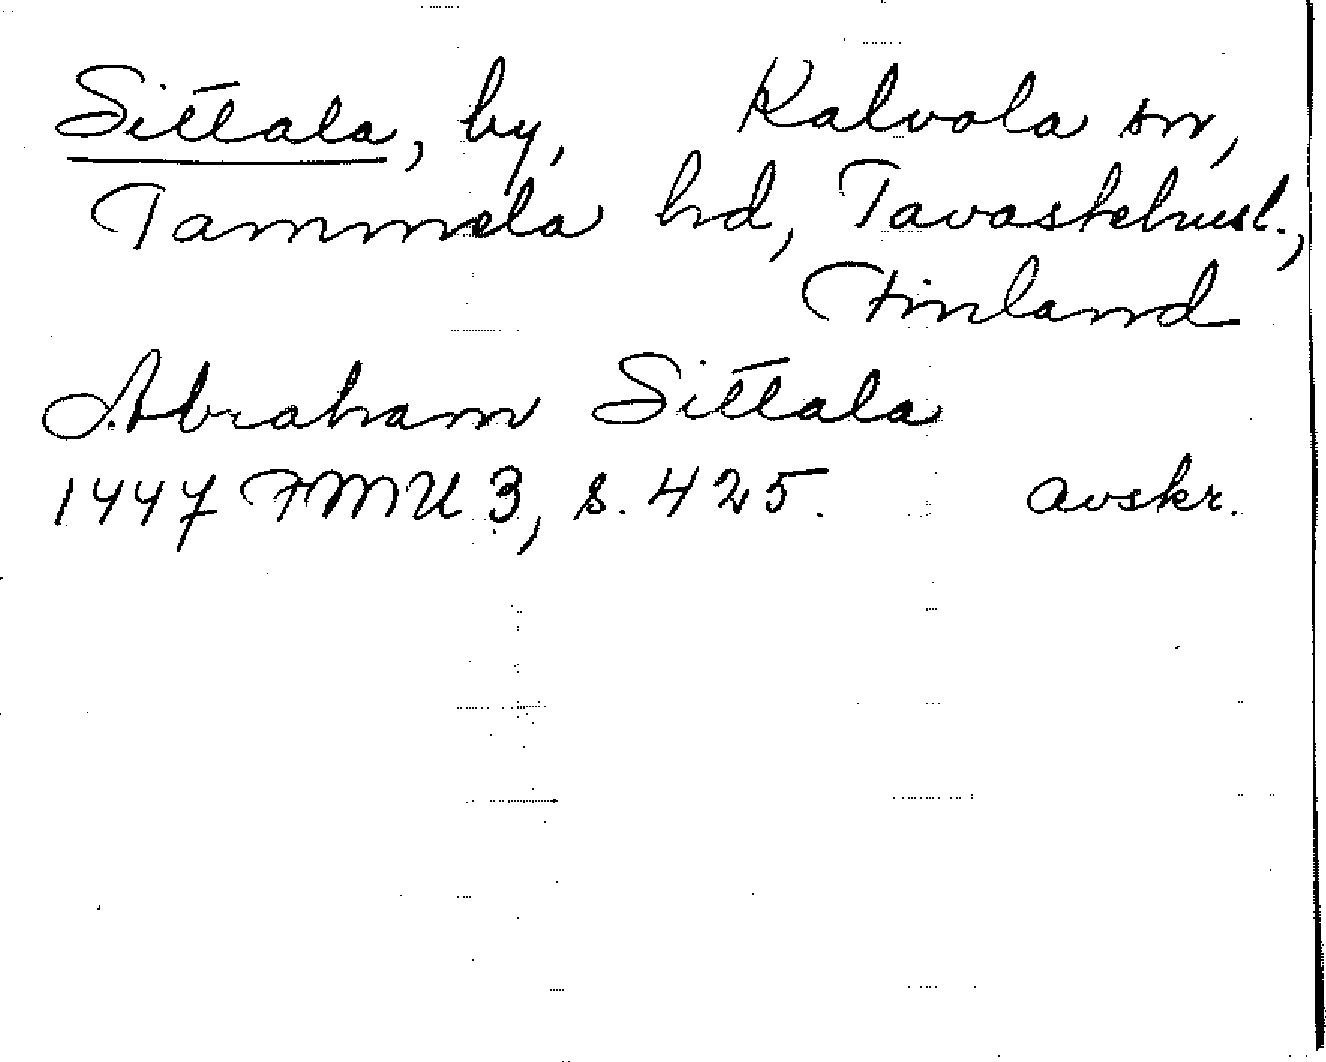 Sittala, by, Kalvola sn,
Tammela hd, Tavastehusl.,
Finland
Abraham Sittala
1447 FMU 3, s. 425. avskr.